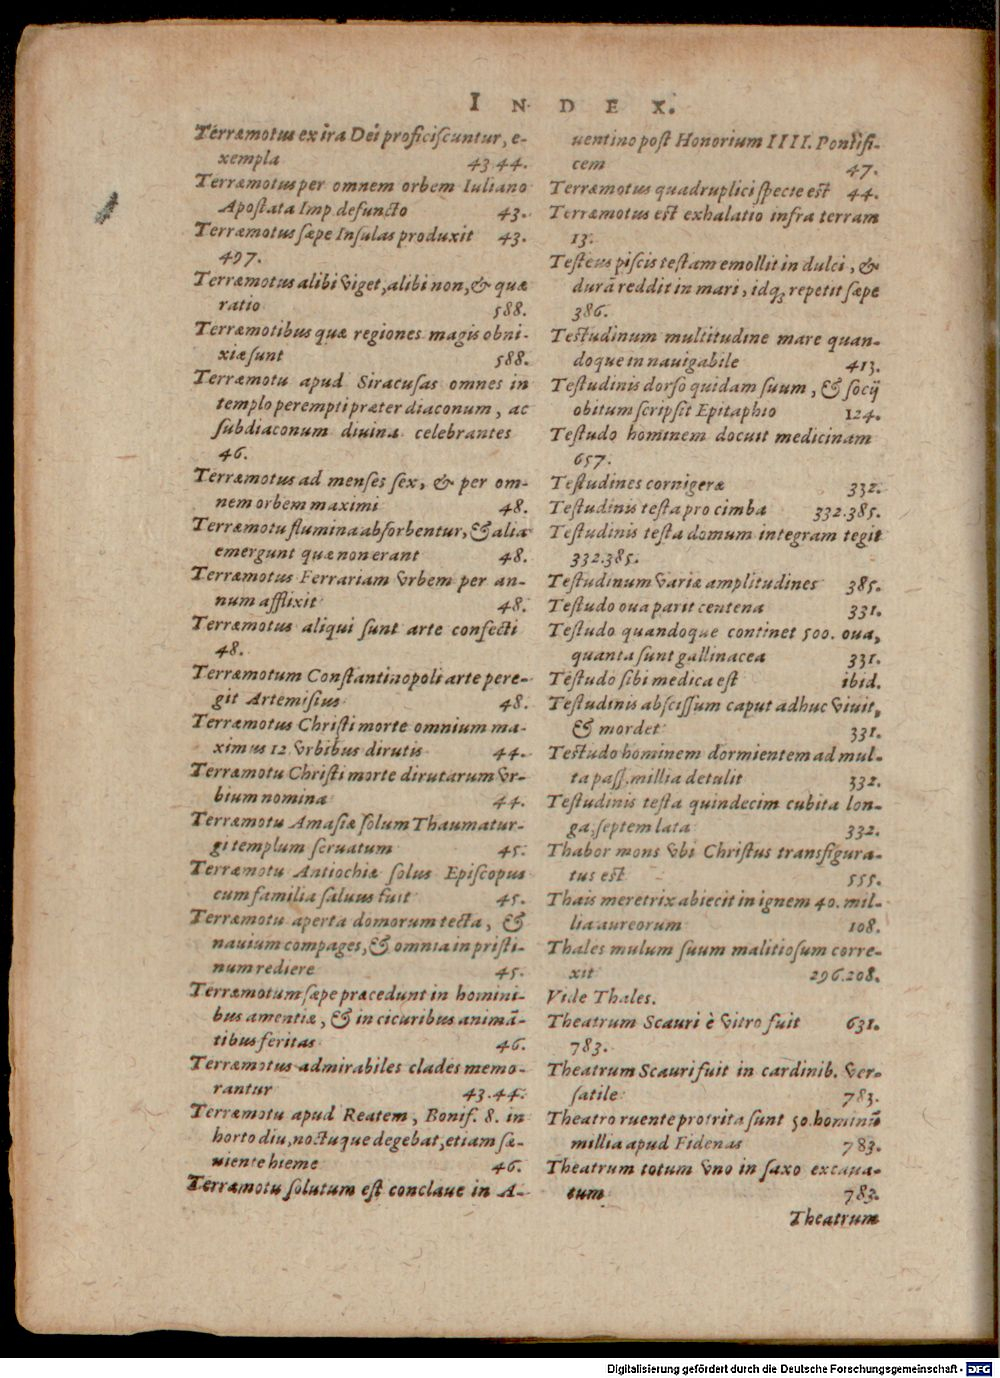 INDEX.
Terræmotus ex ira Dei proficiſcuntur, e-
xempla 43.44.
Terræmotus per omnem orbem Iuliano
Apoſtata Imp. defuncto 43.
Terræmotus ſæpe Inſulas produxit 43.
497.
Terræmotus alibi viget, alibi non, & quæ
ratio 588.
Terræmotibus quæ regiones magis obni-
xiæ ſunt 588.
Terræmotu apud Siracuſas omnes in
templo perempti præter diaconum, ac
ſubdiaconum diuina celebrantes
46.
Terræmotus ad menſes ſex, & per om-
nem orbem maximi 48.
Terræmotu flumina abſorbentur, & alia
emergunt quæ non erant 48.
Terræmotus Ferrariam vrbem per an-
num afflixit 48.
Terræmotus aliqui ſunt arte confecti
48.
Terræmotum Conſtantinopoli arte pere-
git Artemiſius 48.
Terræmotus Chriſti morte omnium ma-
ximus 12. vrbibus dirutis 44.
Terræmotu Chriſti morte dirutarum vr-
bium nomina 44.
Terræmotu Amaſiæ ſolum Thaumatur-
gi templum ſeruatum 45.
Terræmotu Antiochiæ ſolus Epiſcopus
cum familia ſaluus fuit 45.
Terræmotu aperta domorum tecta, &
nauium compages, & omnia in priſti-
num rediere 45.
Terræmotum ſæpe præcedunt in homini-
bus amentiæ, & in cicuribus animã-
tibus feritas 46.
Terræmotus admirabiles clades memo-
rantur 43.44.
Terræmotu apud Reatem, Bonif. 8. in
horto diu, noctuque degebat, etiam ſæ-
uiente hieme 46.
Terræmotu ſolutum eſt conclaue in A-
uentino poſt Honorium IIII. Pontifi-
cem 47.
Terræmotus quadruplici ſpecie eſt 44.
Terræmotus eſt exhalatio infra terram
13.
Teſteus piſcis teſtam emollit in dulci, &
durã reddit in mari, idq; repetit ſæpe
386.
Teſtudinum multitudine mare quan-
doque innauigabile 413.
Teſtudinis dorſo quidam ſuum, & ſocij
obitum ſcripſit Epitaphio 124.
Teſtudo hominem docuit medicinam
657.
Teſtudines cornigeræ 332.
Teſtudinis teſta pro cimba 332.385.
Teſtudinis teſta domum integram tegit
332.385.
Teſtudinum variæ amplitudines 385.
Teſtudo oua parit centena 331.
Teſtudo quandoque continet 500. oua,
quanta ſunt gallinacea 331.
Teſtudo ſibi medica eſt ibid.
Teſtudinis abſciſſum caput adhuc viuit,
& mordet 331.
Teſtudo hominem dormientem ad mul-
ta paſſ. millia detulit 332.
Teſtudinis teſta quindecim cubita lon-
ga, ſeptem lata 332.
Thabor mons vbi Chriſtus transfigura-
tus eſt 555.
Thais meretrix abiecit in ignem 40. mil-
lia aureorum 108.
Thales mulum ſuum malitioſum corre-
xit 296.208.
Vide Thales.
Theatrum Scauri è vitro fuit 631.
783.
Theatrum Scauri fuit in cardinib. ver-
ſatile 783.
Theatro ruente protrita ſunt 50. hominũ
millia apud Fidenas 783.
Theatrum totum vno in ſaxo excaua-
tum 783.
Theatrum
Digitalisierung gefördert durch die Deutsche Forschungsgemeinschaft - DFG